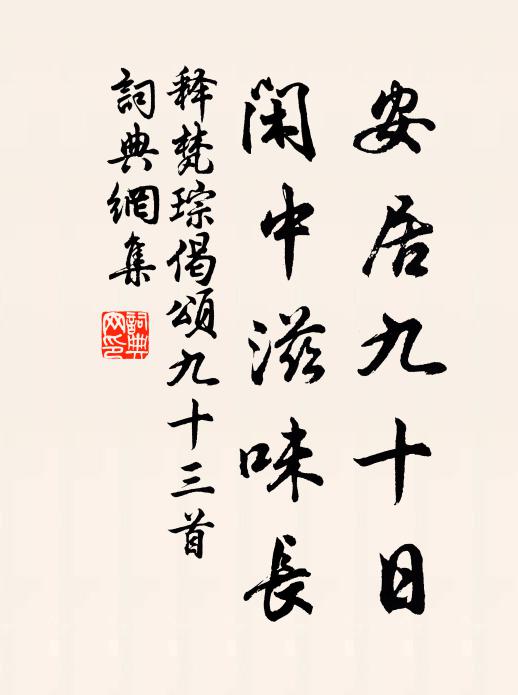 安居九十日
閑中滋味長
释梵琮偈頌九十三首
詞典網集
詞典網印